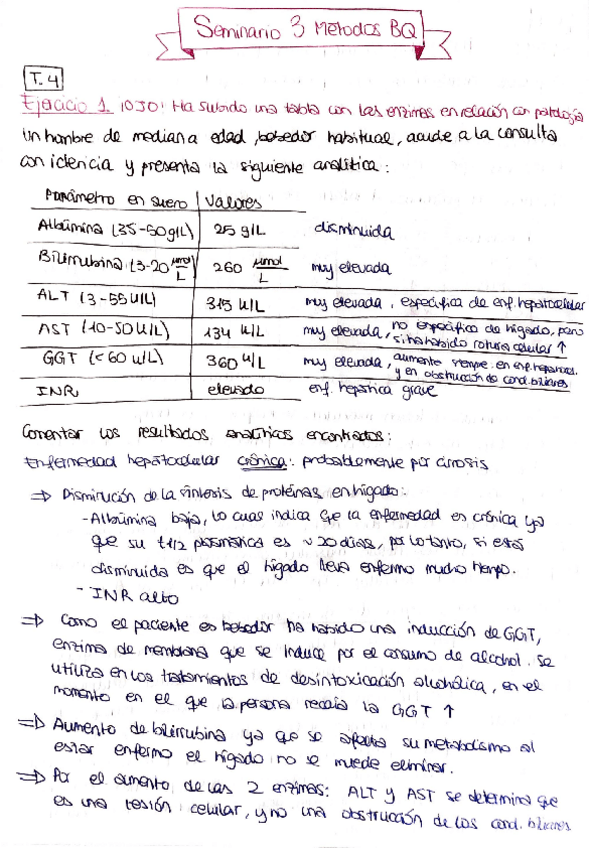 Seminario 3 Métodos BQ
T.4
Ejercicio 1 ¡OJO! Ha subido una tabla con las enzimas en relación con patología
Un hombre de mediana edad, bebedor habitual, acude a la consulta
con ictericia y presenta la siguiente analítica:
Parámetro en suero | Valores
Albúmina (35-50g/L) | 25 g/L disminuida
Bilirrubina (3-20 µmol/L) | 260 µmol/L muy elevada
ALT (3-55 U/L) | 315 U/L muy elevada, específica de enf. hepatocelular
AST (10-50 U/L) | 134 U/L muy elevada, no específica de hígado, pero si ha habido rotura celular ↑
GGT (<60 U/L) | 360 U/L muy elevada, aumenta siempre en enf. hepatocel. y en obstrucción de cond. biliares
INR | elevado enf. hepática grave
Comentar los resultados analíticos encontrados:
Enfermedad hepatocelular crónica: probablemente por cirrosis
⇒ Disminución de la síntesis de proteínas en hígado:
- Albúmina baja, lo cual indica que la enfermedad es crónica ya
que su t1/2 plasmática es ~20 días, por lo tanto, si está
disminuida es que el hígado lleva enfermo mucho tiempo.
- INR alto
⇒ Como el paciente es bebedor ha habido una inducción de GGT,
enzima de membrana que se induce por el consumo de alcohol. Se
utiliza en los tratamientos de desintoxicación alcohólica, en el
momento en el que la persona recaía la GGT ↑
⇒ Aumento de bilirrubina ya que se afecta su metabolismo al
estar enfermo el hígado no se puede eliminar.
⇒ Por el aumento de las 2 enzimas: ALT y AST se determina que
es una lesión celular, y no una obstrucción de los cond. biliares